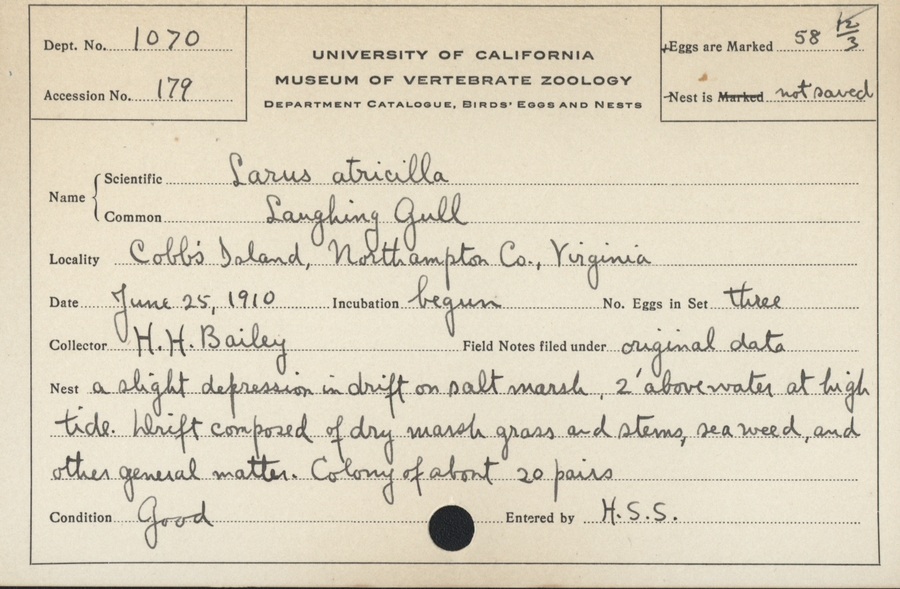 Dept. No. 1070
Accession No. 179
UNIVERSITY OF CALIFORNIA
MUSEUM OF VERTEBRATE ZOOLOGY
DEPARTMENT CATALOGUE, BIRDS' EGGS AND NESTS
Eggs are Marked 58 12/3
Nest is Marked not saved
Name
Scientific Larus atricilla
Common Laughing Gull
Locality Cobb's Island, Northampton Co., Virginia
Date June 25, 1910 Incubation begun No. Eggs in Set three
Collector H.H. Bailey Field Notes filed under original data
Nest a slight depression in drift on salt marsh, 2' above water at high
tide. Drift composed of dry marsh grass and stems, sea weed, and
other general matter. Colony of about 20 pairs
Condition Good Entered by H.S.S.